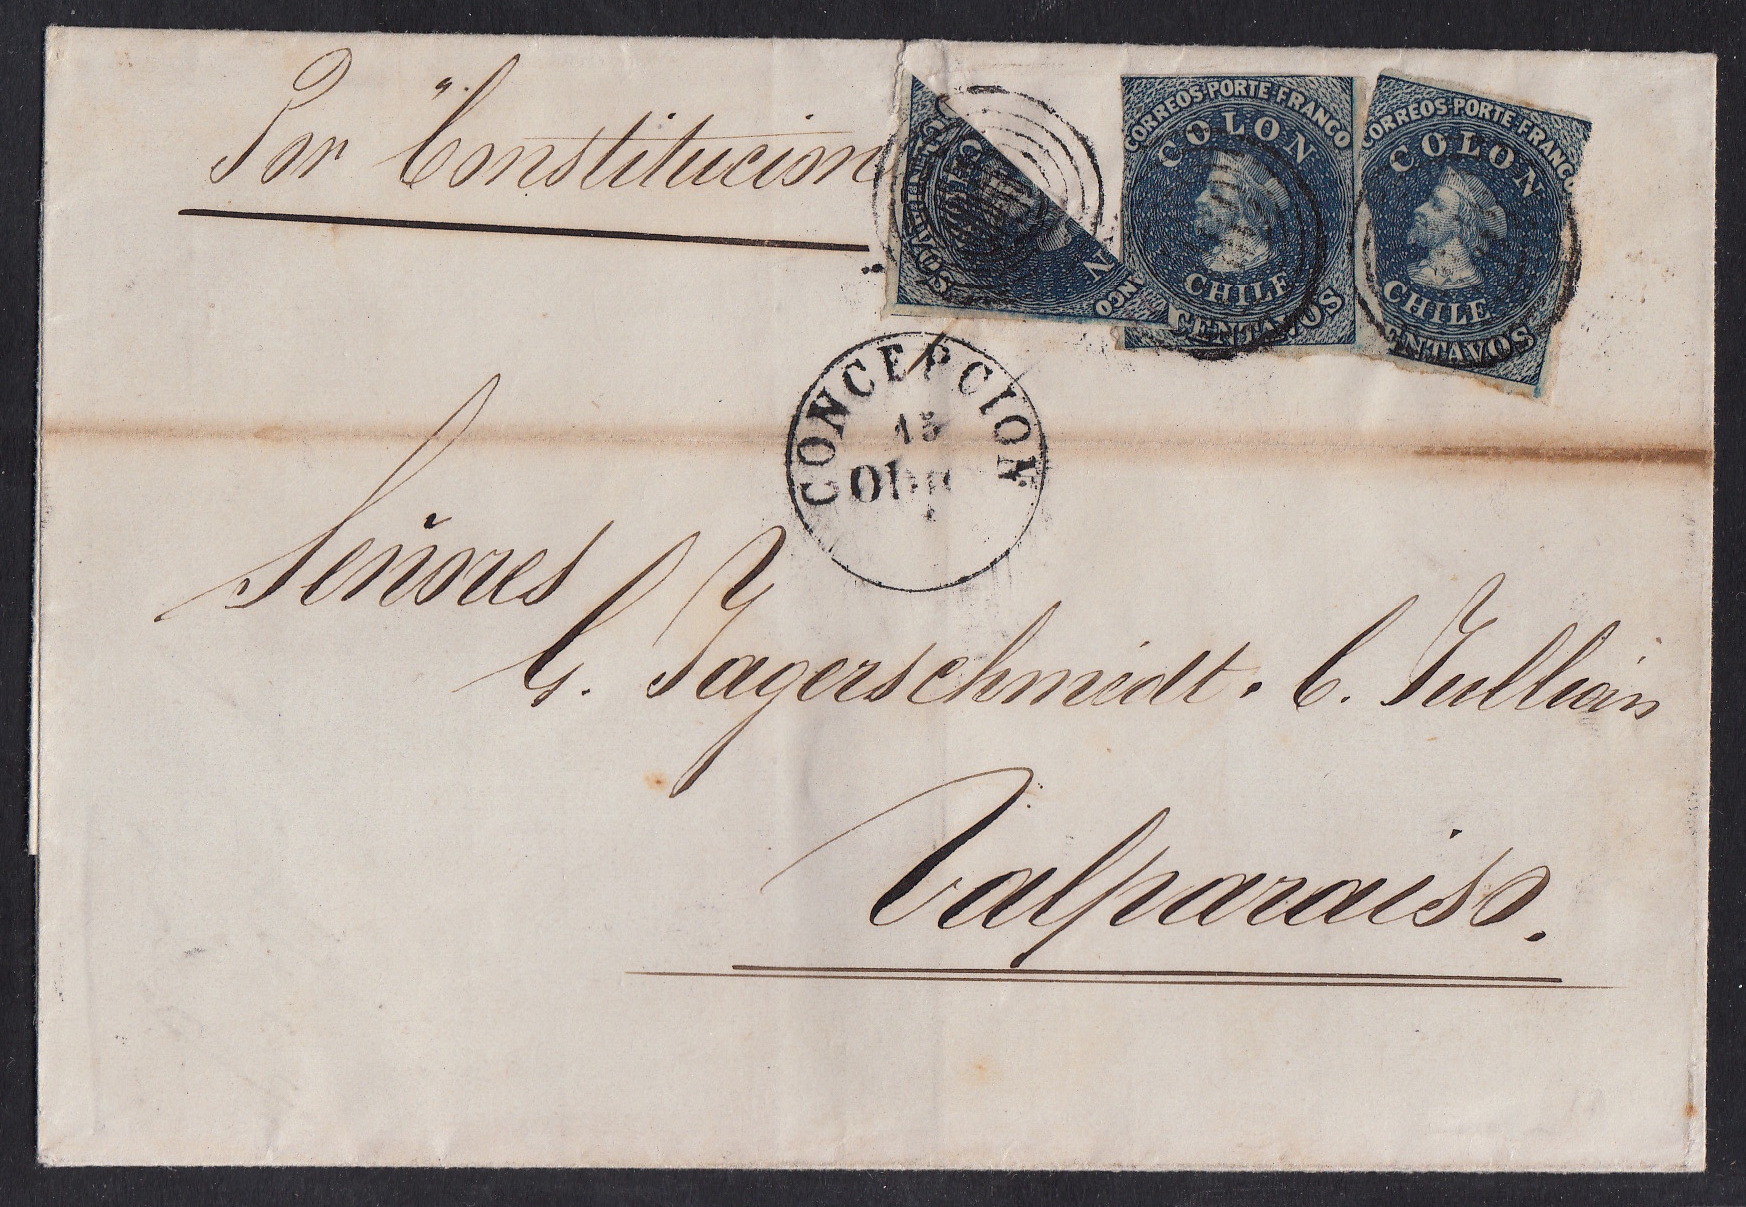 Por "Constitucion
CENTAVOS
N
ANCO
CORREOS·PORTE FRANCO
COLON
CHILE
CENTAVOS
CORREOS·PORTE FRANCO
COLON
CHILE
ENTAVOS
CONCEPCION
15
Señores
G. Jagerschmidt. C. Jullian
Valparaiso.